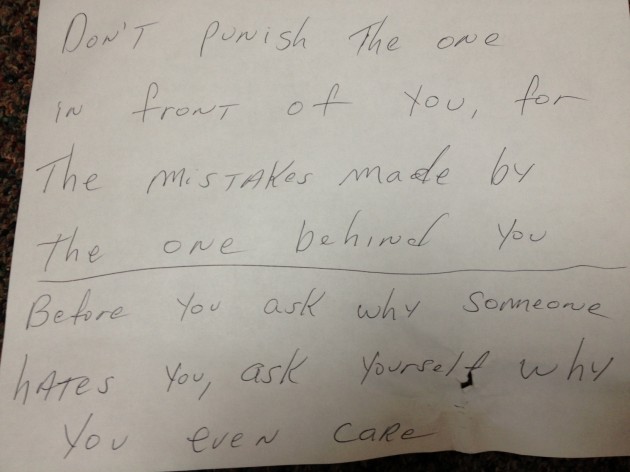 Don't punish the one
in front of you, for
The mistakes made by
the one behind you
Before you ask why someone
hates you, ask yourself why
you even care